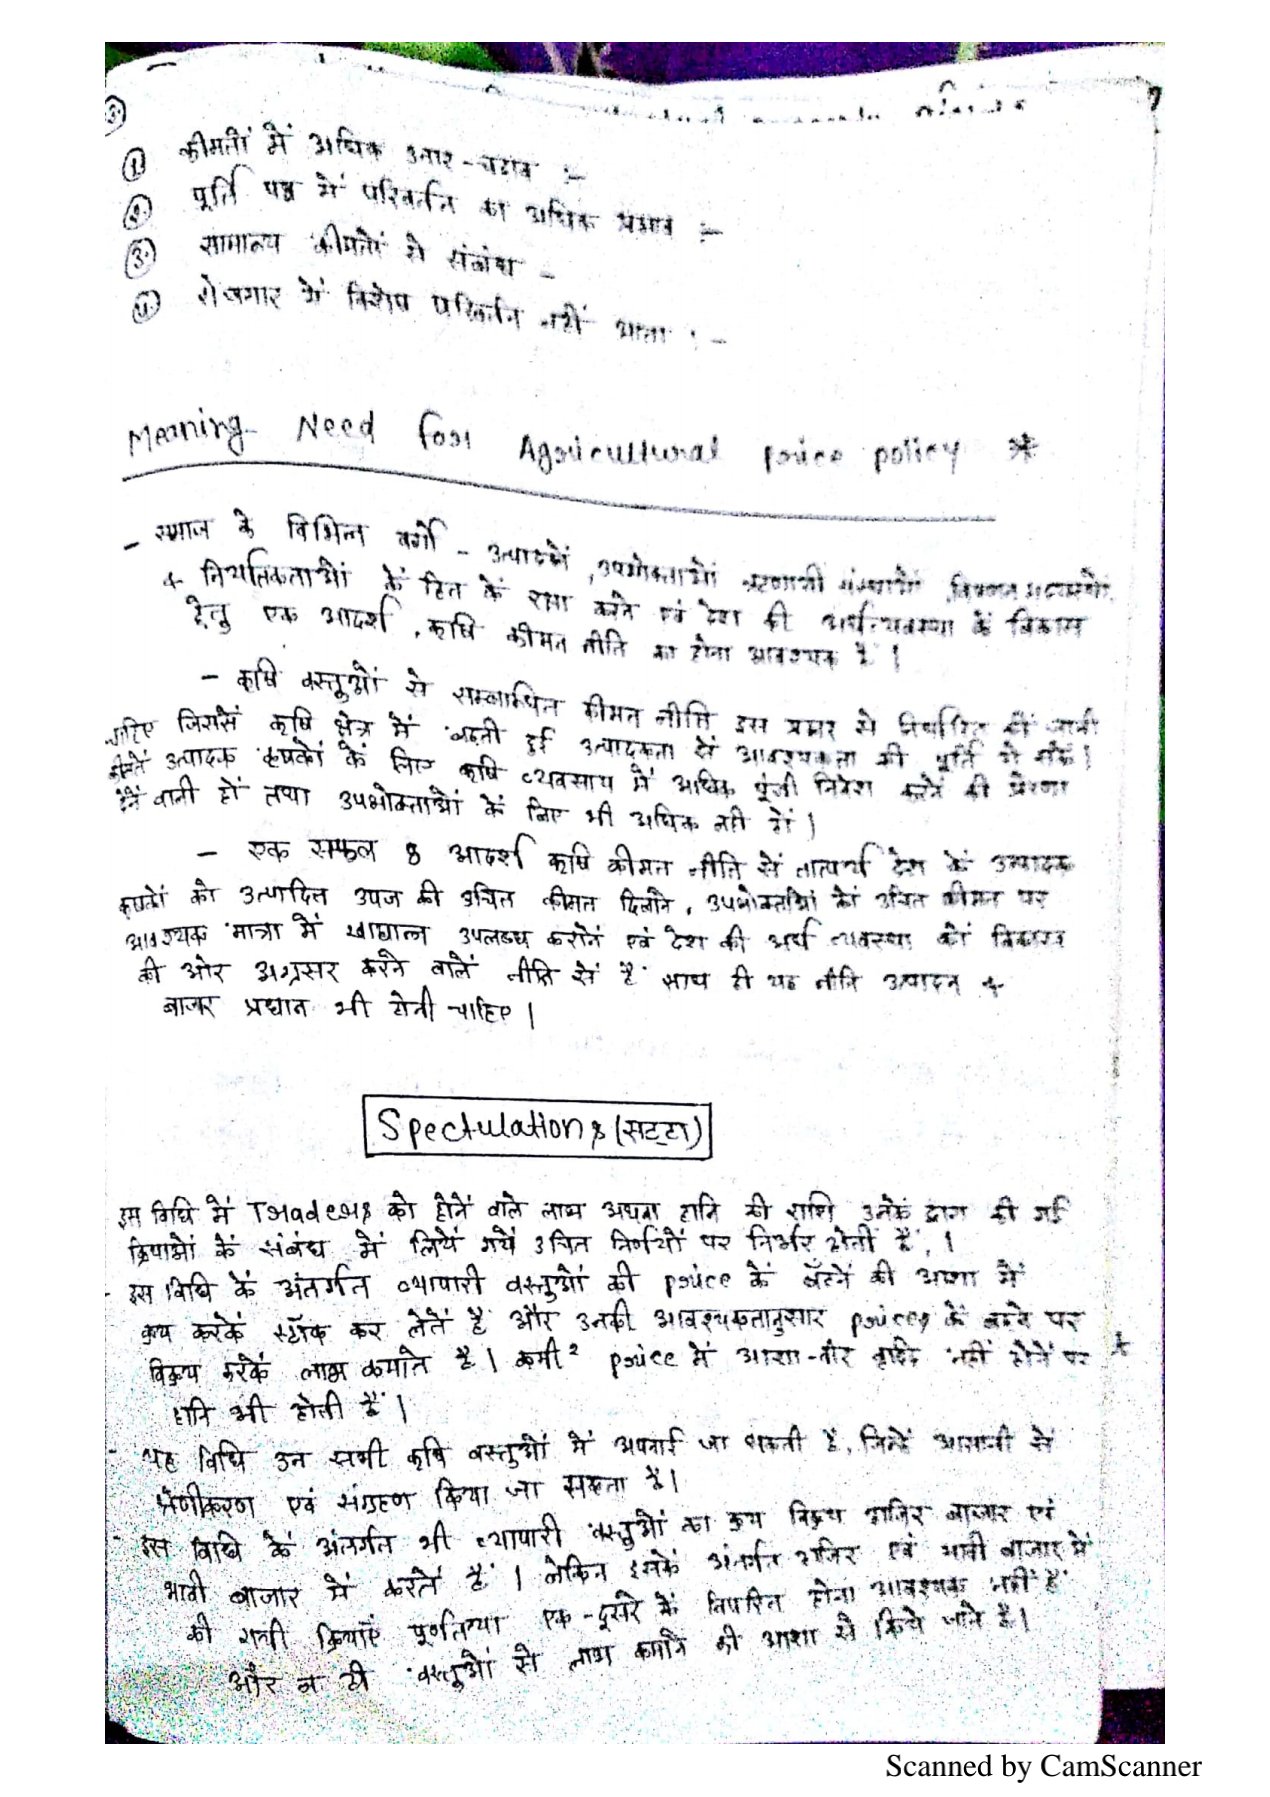 ① कीमतों में अधिक उतार-चढ़ाव :-
② पूर्ति पक्ष में परिवर्तन का अधिक प्रभाव :-
③ सामान्य कीमतों से संबंध -
④ रोजगार में विशेष परिवर्तन नहीं आता :-
Meaning Need for Agricultural price policy *
- समाज के विभिन्न वर्गो - उत्पादकों, उपभोक्ताओं ऋणदात्री संस्थाओं,
& निर्यातकताओं के हित के रक्षा करने एवं देश की अर्थव्यवस्था के विकास
हेतु एक आदर्श, कृषि कीमत नीति का होना आवश्यक है।
- कृषि वस्तुओं से सम्बन्धित कीमत नीति इस प्रकार से निर्धारित की जानी
चाहिए जिससें कृषि क्षेत्र में बढ़ती हुई उत्पादकता से आवश्यकता की पूर्ति हो सकें।
कीमतें उत्पादक कृषकों के लिए कृषि व्यवसाय में अधिक पूंजी निवेश करने की प्रेरणा
देने वाली हों तथा उपभोक्ताओं के लिए भी अधिक नही हों।
- एक सफल & आदर्श कृषि कीमत नीति सें तात्पर्य देश के उत्पादक
कृषकों को उत्पादित उपज की उचित कीमत दिलाने, उपभोक्ताओं कों उचित कीमत पर
आवश्यक मात्रा में खाद्यान्न उपलब्ध करानें एवं देश की अर्थ व्यवस्था कों विकास
की ओर अग्रसर करने वालें नीति सें है साथ ही यह नीति उत्पादन &
बाजार प्रधान भी होनी चाहिए।
Spectulations (सट्टा)
इस विधि में Traders को होनें वाले लाभ अथवा हानि की राशि उनकें द्वारा की गई
क्रियाओं कें संबंध में लियें गयें उचित निर्णयों पर निर्भर होती हैं,।
- इस विधि कें अंतर्गत व्यापारी वस्तुओं की price कें बढनें की आशा में
क्रय करकें स्टॉक कर लेतें है और उनकी आवश्यकतानुसार prices कें बढने पर
विक्रय करकें लाभ कमाते है। कभी² price में आशा-तीत वृद्धि नहीं होनें पर
हानि भी होती हैं।
- यह विधि उन सभी कृषि वस्तुओं में अपनाई जा सकती है, जिन्हें आसानी सें
श्रेणीकरण एवं संग्रहण किया जा सकता है।
- इस विधि कें अंतर्गत भी व्यापारी वस्तुओं का क्रय विक्रय हाजिर बाजार एवं
भावी बाजार में करतें है। लेकिन इसकें अंतर्गत हाजिर एवं भावी बाजार में
की सभी क्रियाएँ पूर्णतया एक-दूसरे कें विपरित होना आवश्यक नहीं है
और न ही वस्तुओं से लाभ कमाने की आशा से किये जाते है।
Scanned by CamScanner